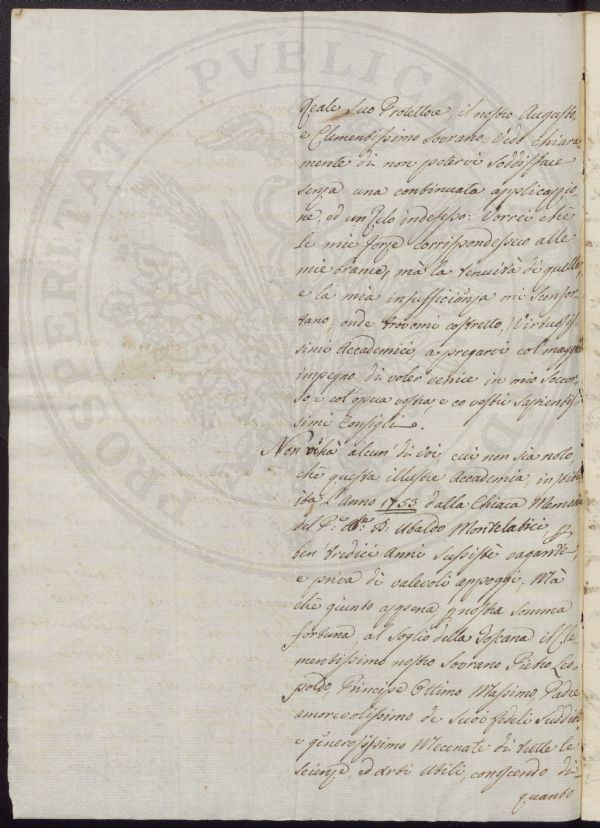 Reale suo Protettore, il nostro Augusto,
e Clementissimo Sovrano, Vedo chiara
mente di non potervi Soddisfare
senza una continuata applicazio
ne, ed un Zelo indefesso: Vorrei che
le mie forze corrispondessero alle
mie brame, mà la tenuità di quelle,
e la mia insufficienza mi Sconfor
tano, onde trovomi costretto, Virtuosis
simi Accademici, a pregarvi col maggior
impegno di voler venire in mio Soccor
so e col'opera vostra, e co vostri Sapientis
simi Consigli.
Non vi hà alcun' di Voi cui non sia noto
che questa illustre Accademia, institu
ita l'Anno 1753 dalla Chiara Memoria
del P. Abe. D. Ubaldo Montelatici p
ben' tredici Anni Sussistè vagante,
e priva di valevoli appoggi; Mà
che giunto appena p nostra somma
fortuna, al Soglio della Toscana il Cle
mentissimo nostro Sovrano Pietro Leo
poldo, Principe Ottimo Massimo, Padre
amorevolissimo de suoi fedeli Sudditi
e generosissimo Mecenate di tutte le
Scienze, ed arti Utili, conoscendo di
quanto
PROSPERITATI PVBLICAE